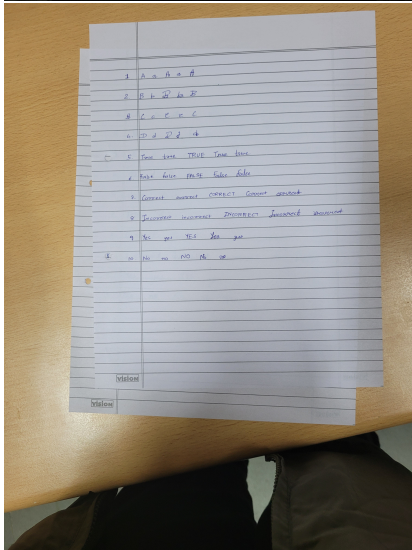 1 A a A a A
2 B b B b B
3 C c C c C
4 D d D d
5 True true TRUE True true
6 False false FALSE False false
7 Correct correct CORRECT Correct correct
8 Incorrect incorrect INCORRECT Incorrect incorrect
9 Yes yes YES Yes yes
10 No no NO No no
vision
vision